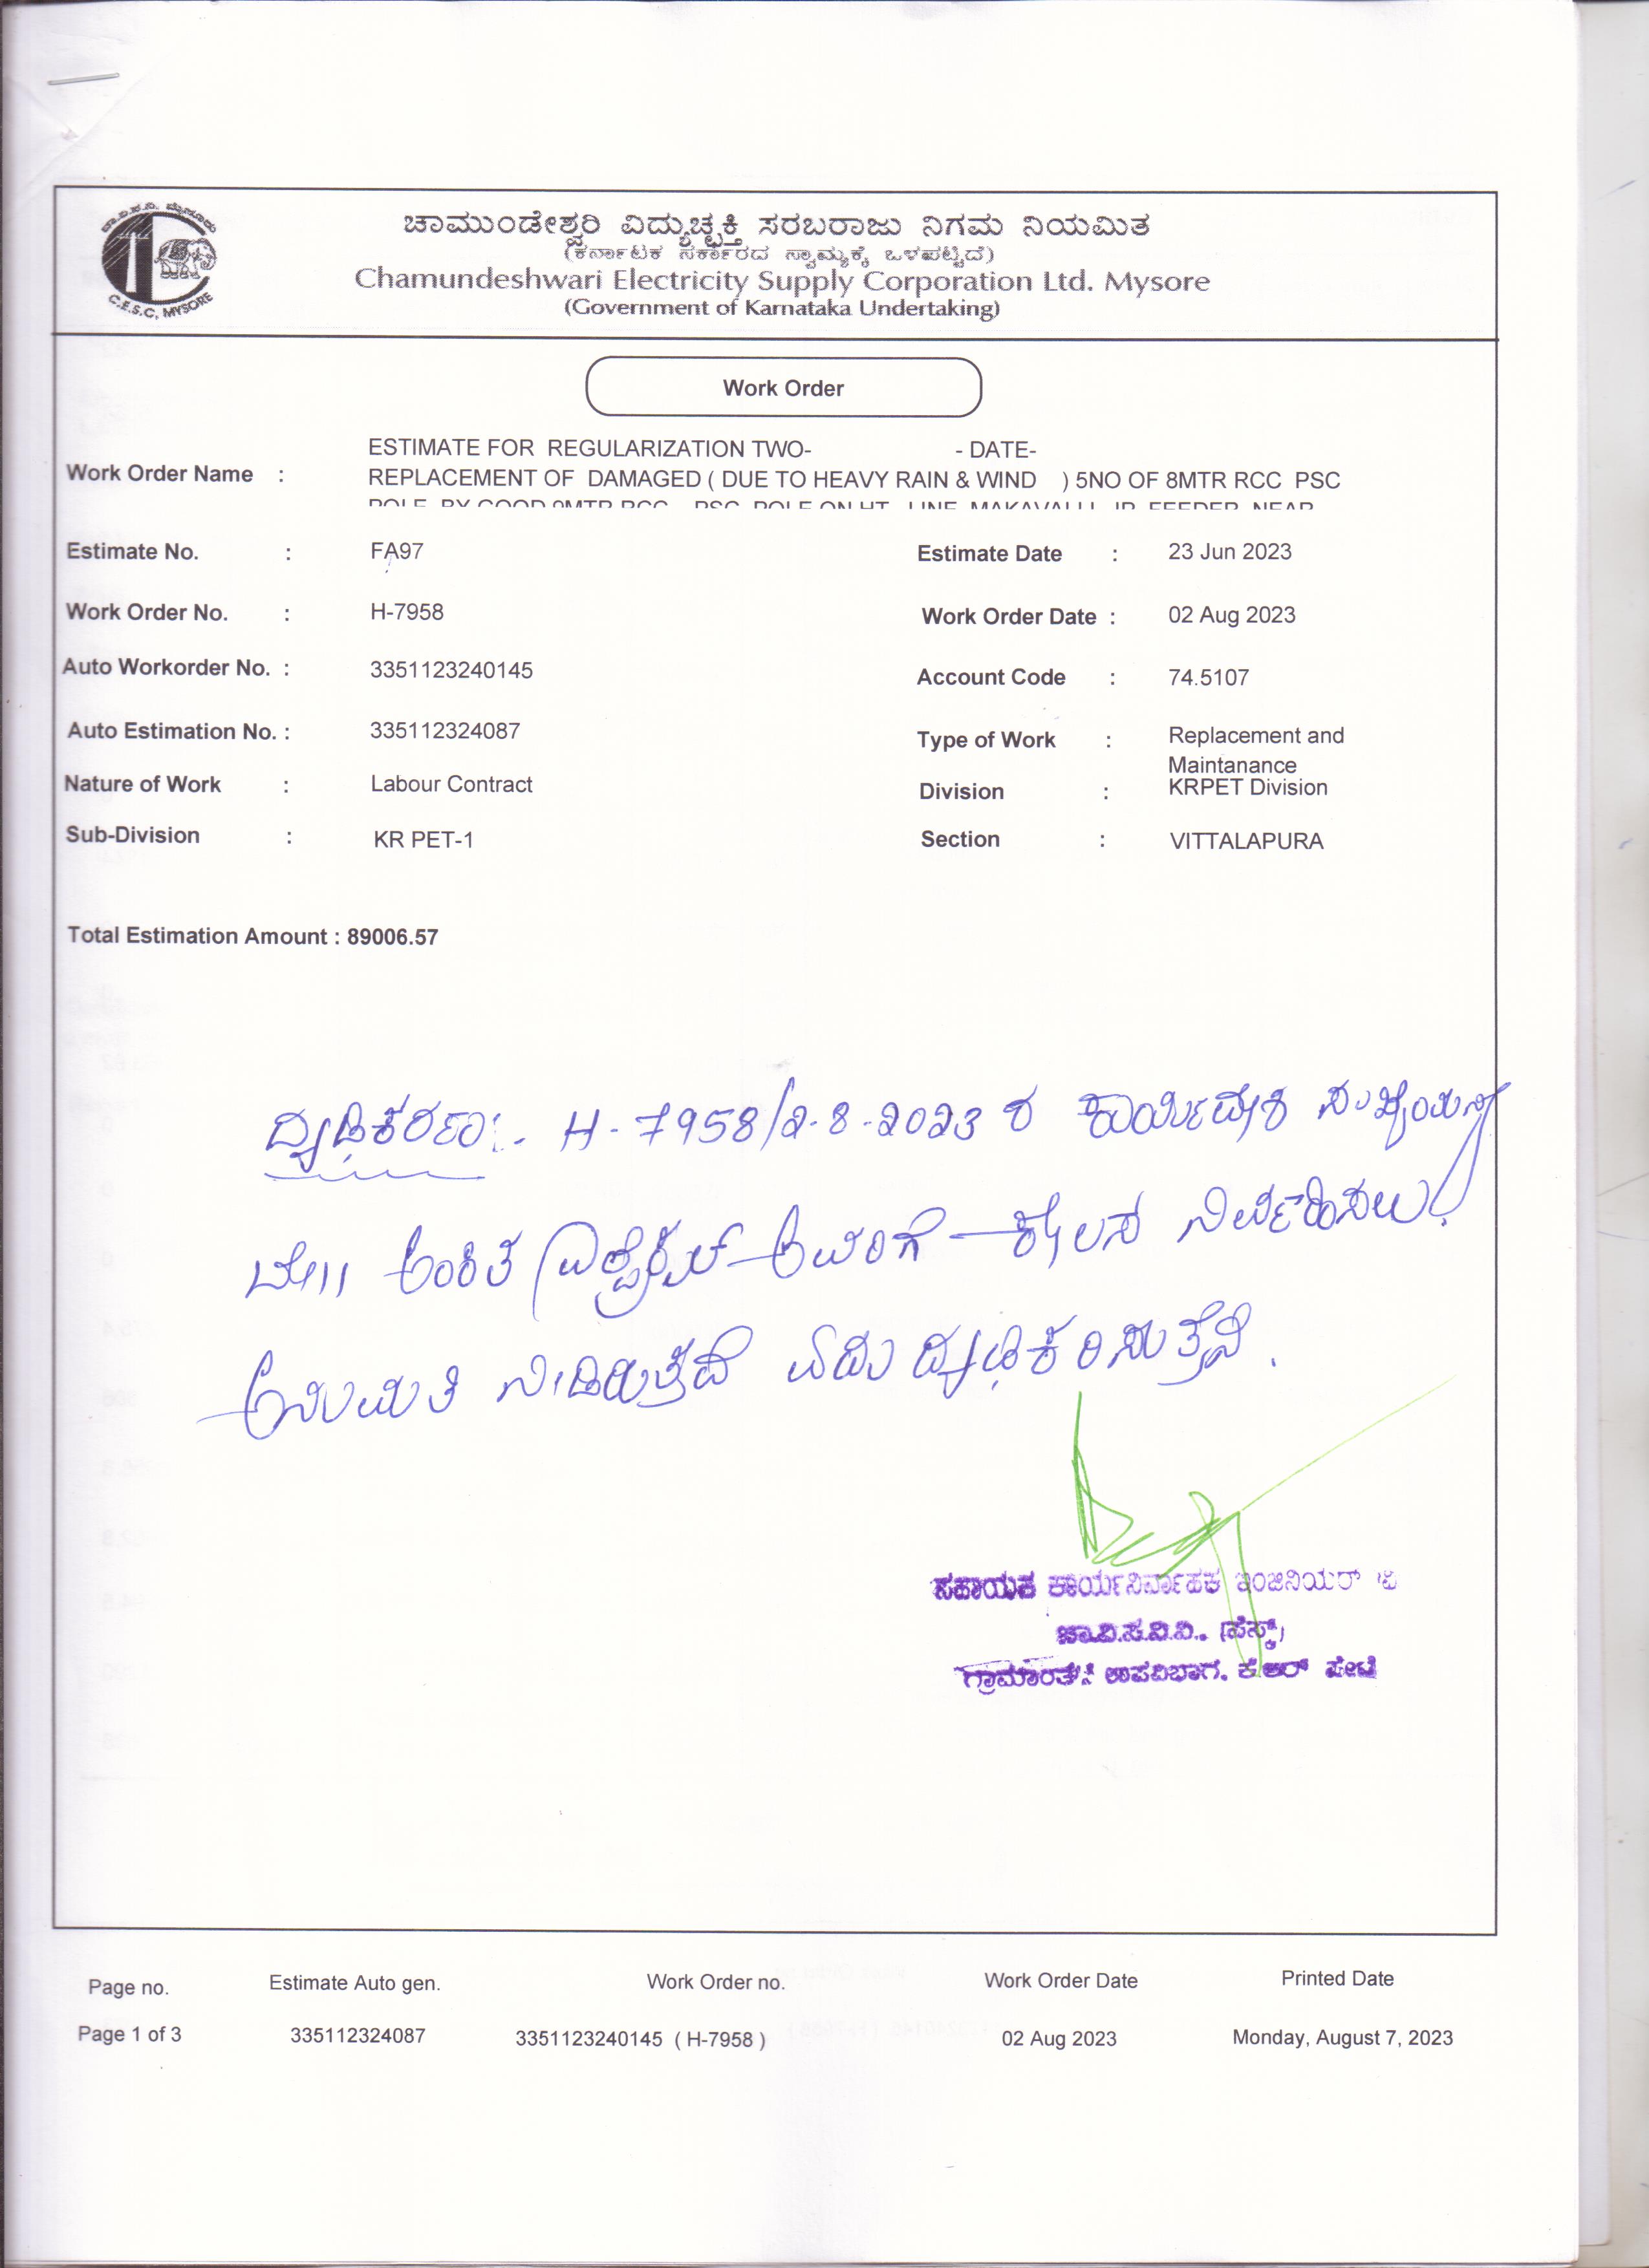 ಚಾ.ವಿ.ಸ.ನಿ. ಮೈಸೂರು
C.E.S.C, MYSORE
ಚಾಮುಂಡೇಶ್ವರಿ ವಿದ್ಯುಚ್ಛಕ್ತಿ ಸರಬರಾಜು ನಿಗಮ ನಿಯಮಿತ
(ಕರ್ನಾಟಕ ಸರ್ಕಾರದ ಸ್ವಾಮ್ಯಕ್ಕೆ ಒಳಪಟ್ಟಿದೆ)
Chamundeshwari Electricity Supply Corporation Ltd. Mysore
(Government of Karnataka Undertaking)
Work Order
Work Order Name : ESTIMATE FOR REGULARIZATION TWO- - DATE-
REPLACEMENT OF DAMAGED ( DUE TO HEAVY RAIN & WIND ) 5NO OF 8MTR RCC PSC
POLE BY GOOD 9MTR RCC PSC POLE ON HT LINE MAKAVALLI IP FEEDER NEAR
Estimate No. : FA97 Estimate Date : 23 Jun 2023
Work Order No. : H-7958 Work Order Date : 02 Aug 2023
Auto Workorder No. : 3351123240145 Account Code : 74.5107
Auto Estimation No. : 335112324087 Type of Work : Replacement and
Maintanance
Nature of Work : Labour Contract Division : KRPET Division
Sub-Division : KR PET-1 Section : VITTALAPURA
Total Estimation Amount : 89006.57
ದೃಢಿಕರಣ:- H-7958/2-8-2023 ರ ಕಾರ್ಯಾದೇಶ ಸಂಖ್ಯೆಯನ್ನು
ಮೇ|| ಅಂಕಿತ ಅವರಿಗೆ ಕೆಲಸ ನಿರ್ವಹಿಸಲು
ಅನುಮತಿ ನೀಡಿರುತ್ತದೆ ಎಂದು ದೃಢಿಕರಿಸುತ್ತೇನೆ.
ಸಹಾಯಕ ಕಾರ್ಯನಿರ್ವಾಹಕ ಇಂಜಿನಿಯರ್
ಚಾ.ವಿ.ಸ.ನಿ.ನಿ., (ಸೆಸ್ಕ್)
ಗ್ರಾಮಾಂತರ ಉಪವಿಭಾಗ. ಕೆ.ಆರ್ ಪೇಟೆ
Page no. Estimate Auto gen. Work Order no. Work Order Date Printed Date
Page 1 of 3 335112324087 3351123240145 ( H-7958 ) 02 Aug 2023 Monday, August 7, 2023